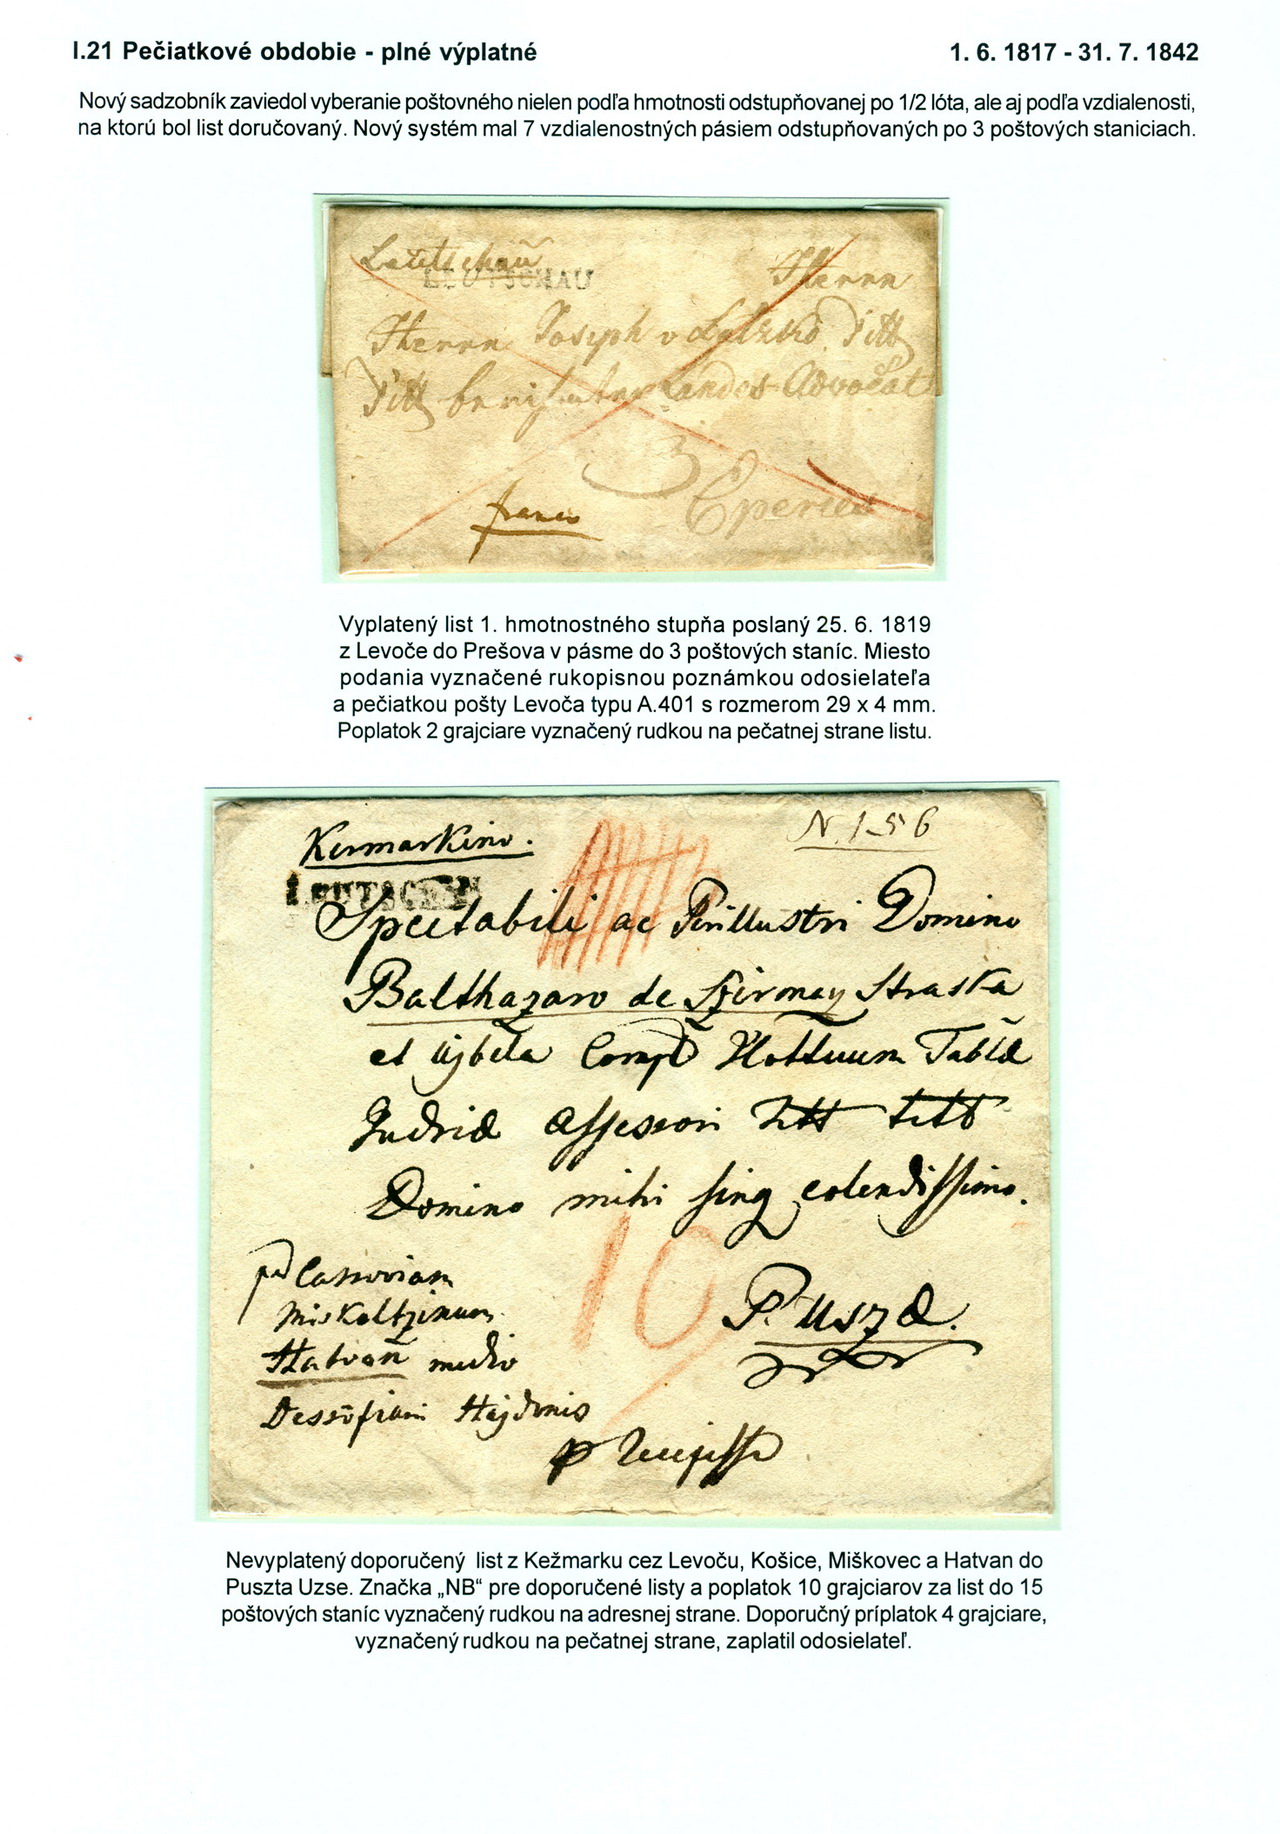 I.21 Pečiatkové obdobie - plné výplatné 1. 6. 1817 - 31. 7. 1842
Nový sadzobník zaviedol vyberanie poštovného nielen podľa hmotnosti odstupňovanej po 1/2 lóta, ale aj podľa vzdialenosti,
na ktorú bol list doručovaný. Nový systém mal 7 vzdialenostných pásiem odstupňovaných po 3 poštových staniciach.
Leutschau
LEUTSCHAU
Herrn
Herrn Joseph v Titt
Titt Landes Advocat
3
Eperies
franco
Vyplatený list 1. hmotnostného stupňa poslaný 25. 6. 1819
z Levoče do Prešova v pásme do 3 poštových staníc. Miesto
podania vyznačené rukopisnou poznámkou odosielateľa
a pečiatkou pošty Levoča typu A.401 s rozmerom 29 x 4 mm.
Poplatok 2 grajciare vyznačený rudkou na pečatnej strane listu.
Kesmarkino.
N. 156
LEUTSCHAU
Spectabili ac Perillustri Domino
Balthazaro de Szirmay Straska
et Ujbela Compl Tablæ
Judriæ Assessori Titt titt
Domino mihi sing colendissimo.
10
per Cassoviam
Miskoltzinum
Hatvan medio
P. Uszæ.
Nevyplatený doporučený list z Kežmarku cez Levoču, Košice, Miškovec a Hatvan do
Puszta Uzse. Značka „NB“ pre doporučené listy a poplatok 10 grajciarov za list do 15
poštových staníc vyznačený rudkou na adresnej strane. Doporučný príplatok 4 grajciare,
vyznačený rudkou na pečatnej strane, zaplatil odosielateľ.